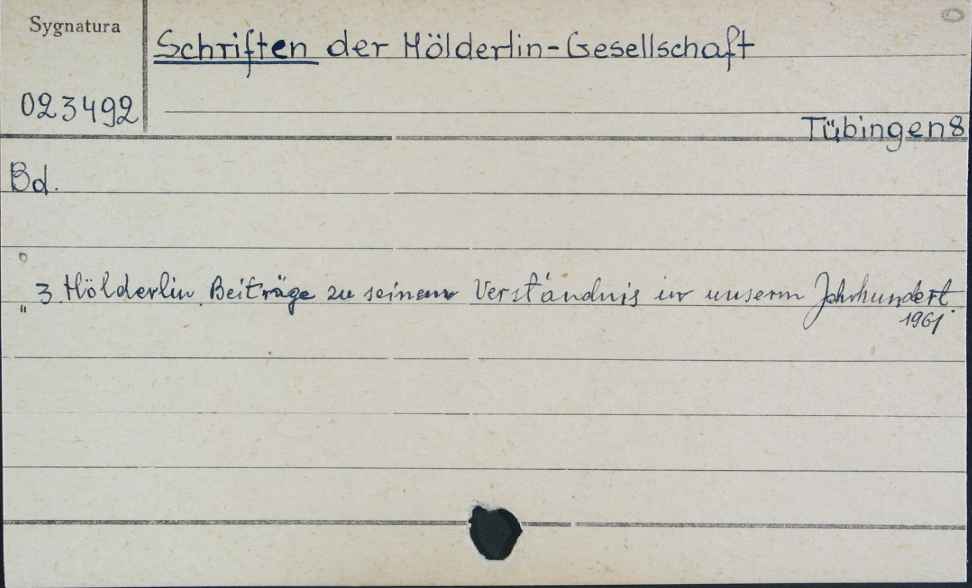 Sygnatura
Schriften der Hölderlin-Gesellschaft
023492
Tübingen 8
Bd.
" 3. Hölderlin. Beiträge zu seinem Verständnis in unserm Jahrhundert.
1961